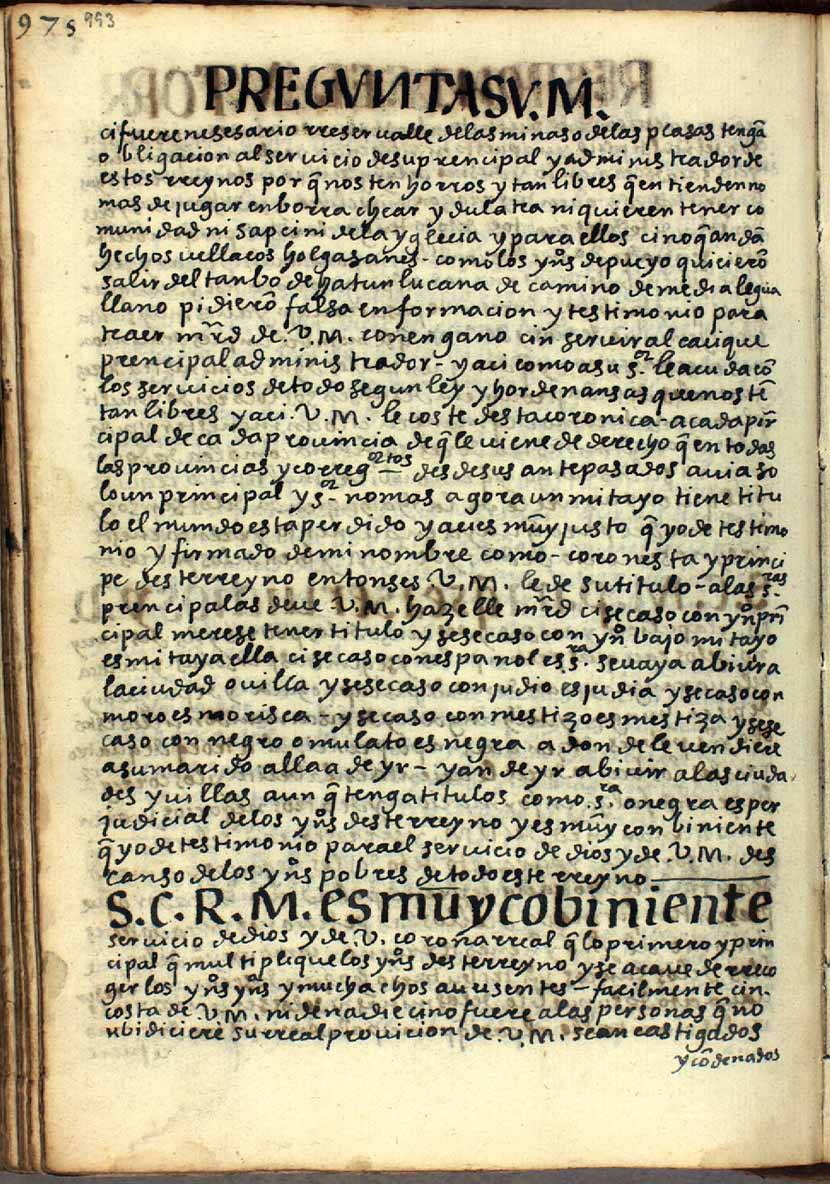 975 993
PREGVNTA SV. M.
ci fuere nesesario rreserualle de las minas o de las plasas tenga͂
obligacion al seruicio de su prencipal y administrador de
estos rreynos por q̃ nosten horros y tan libres q̃ entienden no
mas de jugar enborrachear y dulatra ni quieren tener co
munidad ni sapci ni de la yglecia y para ellos cino q̃ anda͂
hechos uellacos holgasanes - como los yn͂s de pueyo quiciero͂
salir del tanbo de hatun lucana de camino de media legua
llano pidiero͂ falsa enformacion y testimonio para
traer mr͂d de .V.M. con engano cin seruir al cacique
prencipal administrador - y aci como a su s.or le acuda co͂
los seruicios de todo segun ley y hordenansas que nos te͂
tan libres y aci .V.M. le coste desta coronica - a cada prin͂
cipal de cada prouincia de q̃ le uiene de derecho q̃ en todas
las prouincias y correg.ortos des de sus antepasados auia so
lo un principal y s.or no mas agora un mitayo tiene titu
lo el mundo esta perdido y aci es mu͂y justo q̃ yo de testimo
nio y firmado de mi nombre como - coronesta y princi
pe deste rreyno entonses V.M. le de su titulo - a las s.ras
prencipalas deue .V.M. hazelle mr͂d ci se caso con yn͂ prin͂
cipal merese tener titulo y se se caso con yn͂ bajo mitayo
es mitaya ella ci se caso con espanol es s.ra se uaya a biuira
la ciudad o uilla y se se caso con judio es judia y se caso con
moro es morisca - y se caso con mestizo es mestiza y se se
caso con negro o mulato es negra a donde le uendiere
a su marido alla a de yr - y an de yr a biuir a las ciuda
des y uillas aunq̃ tenga titulos como .s.ra o negra es per
judicial de los yn͂s deste rreyno y es mu͂y conbiniente
q̃ yo de testimonio para el seruicio de dios y de .V.M. des
canso de los yn͂s pobres de todo este rreyno
S. C. R. M. es mu͂y cobiniente
seruicio de dios y de .V. corona rreal q̃ lo primero y prin
cipal q̃ multiplique los yn͂s deste rreyno y se acaue de rreco
ger los yn͂s yn͂s y muchachos auusentes - facilmente cin
costa de .V.M. ni de nadie cino fuere a las personas q̃ no
ubidiciere su rreal prouicion de .V.M. sean castigados
y co͂denados